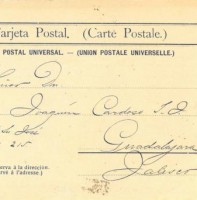 Tarjeta Postal. (Carte Postale.)
POSTAL UNIVERSAL. — (UNION POSTALE UNIVERSELLE.)
Señor Dn.
Joaquín Cardoso S.J.
de
215
Guadalajara
Jalisco
rva à la dirección.
rvé à l'adresse.)